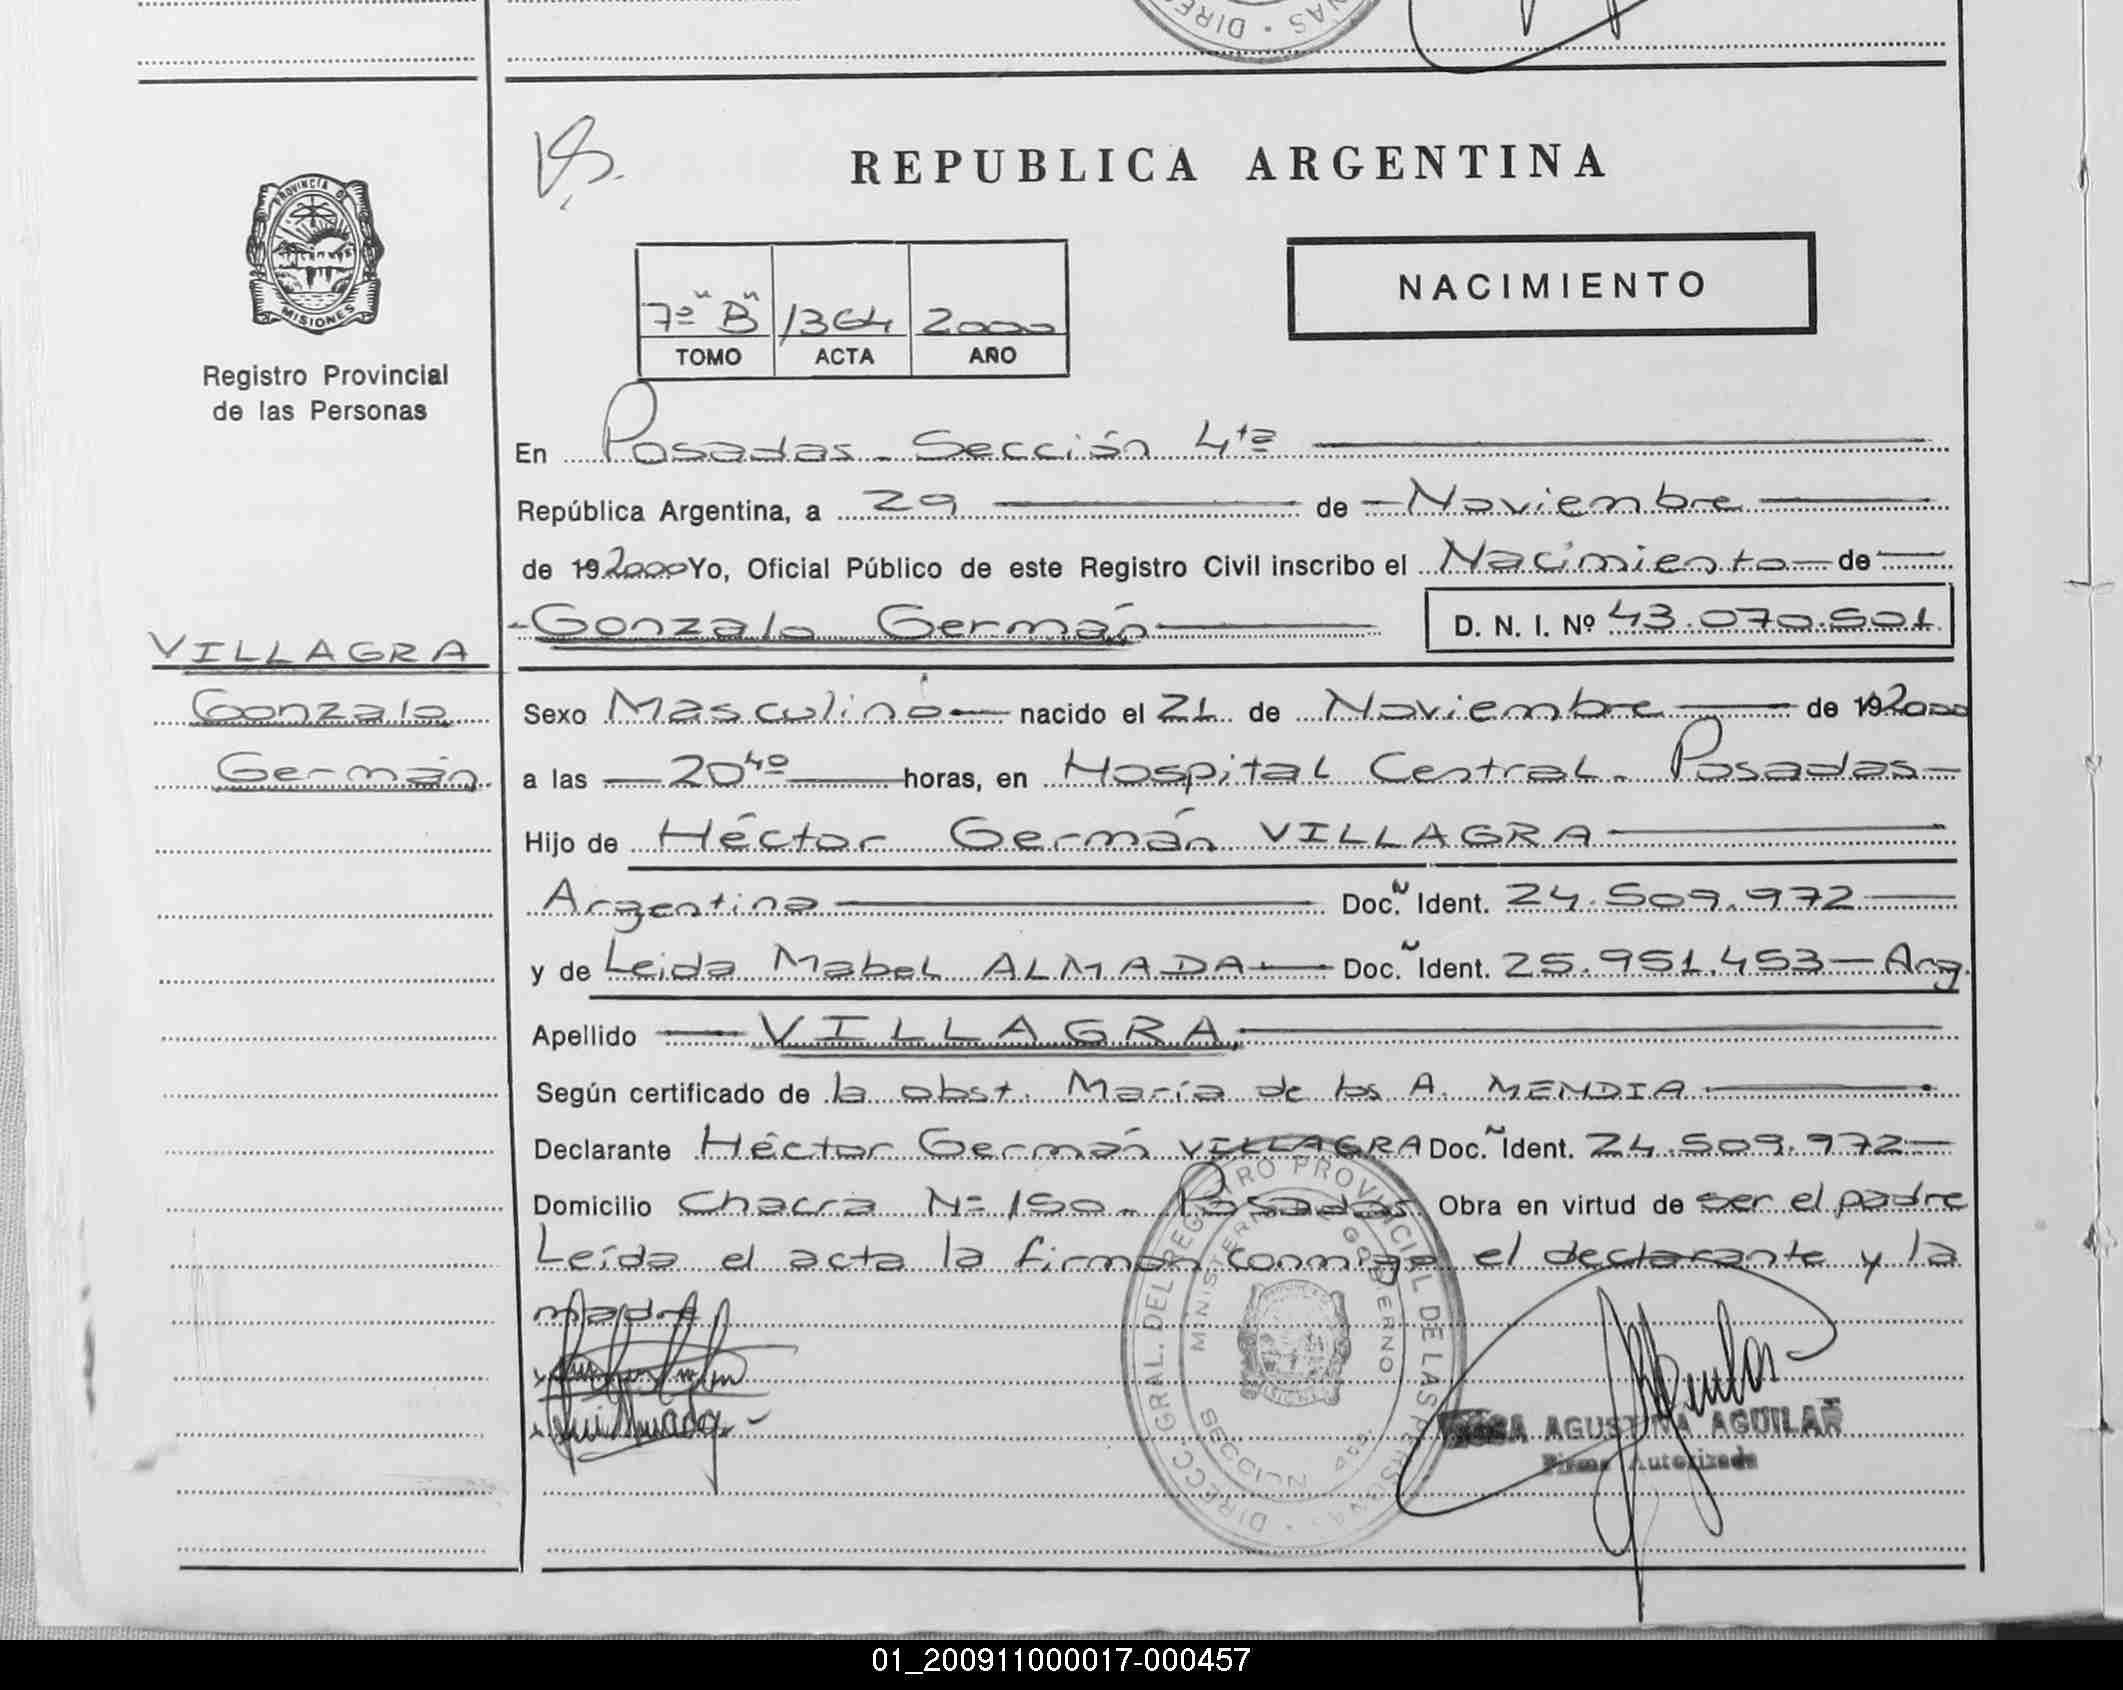 DIRE · NAS
REPUBLICA ARGENTINA
PROVINCIA DE
MISIONES
Registro Provincial
de las Personas
7º "B" 1364 2000
TOMO ACTA AÑO
NACIMIENTO
En Posadas - Sección 4ta
República Argentina, a 29 de Noviembre
de 19 2000 Yo, Oficial Público de este Registro Civil inscribo el Nacimiento de
Gonzalo Germán D. N. I. Nº 43.070.501
VILLAGRA
Gonzalo
Germán.
Sexo Masculino nacido el 21 de Noviembre de 19 2000
a las 20 40 horas, en Hospital Central - Posadas
Hijo de Héctor Germán VILLAGRA
Argentina Doc. Ident. 24.509.972
y de Leida Mabel ALMADA Doc. Ident. 25.951.453 - Arg.
Apellido VILLAGRA
Según certificado de la obst. María de los A. MENDIA
Declarante Héctor Germán VILLAGRA Doc. Ident. 24.509.972
Domicilio Chacra Nº 150 - Posadas Obra en virtud de ser el padre
Leída el acta la firman conmigo el declarante y la
madre
DIRECC. GRAL. DEL REGISTRO PROVINCIAL DE LAS PERSONAS
MINISTERIO DE GOBIERNO
ROSA AGUSTINA AGUILAR
Firma Autorizada
01_200911000017-000457